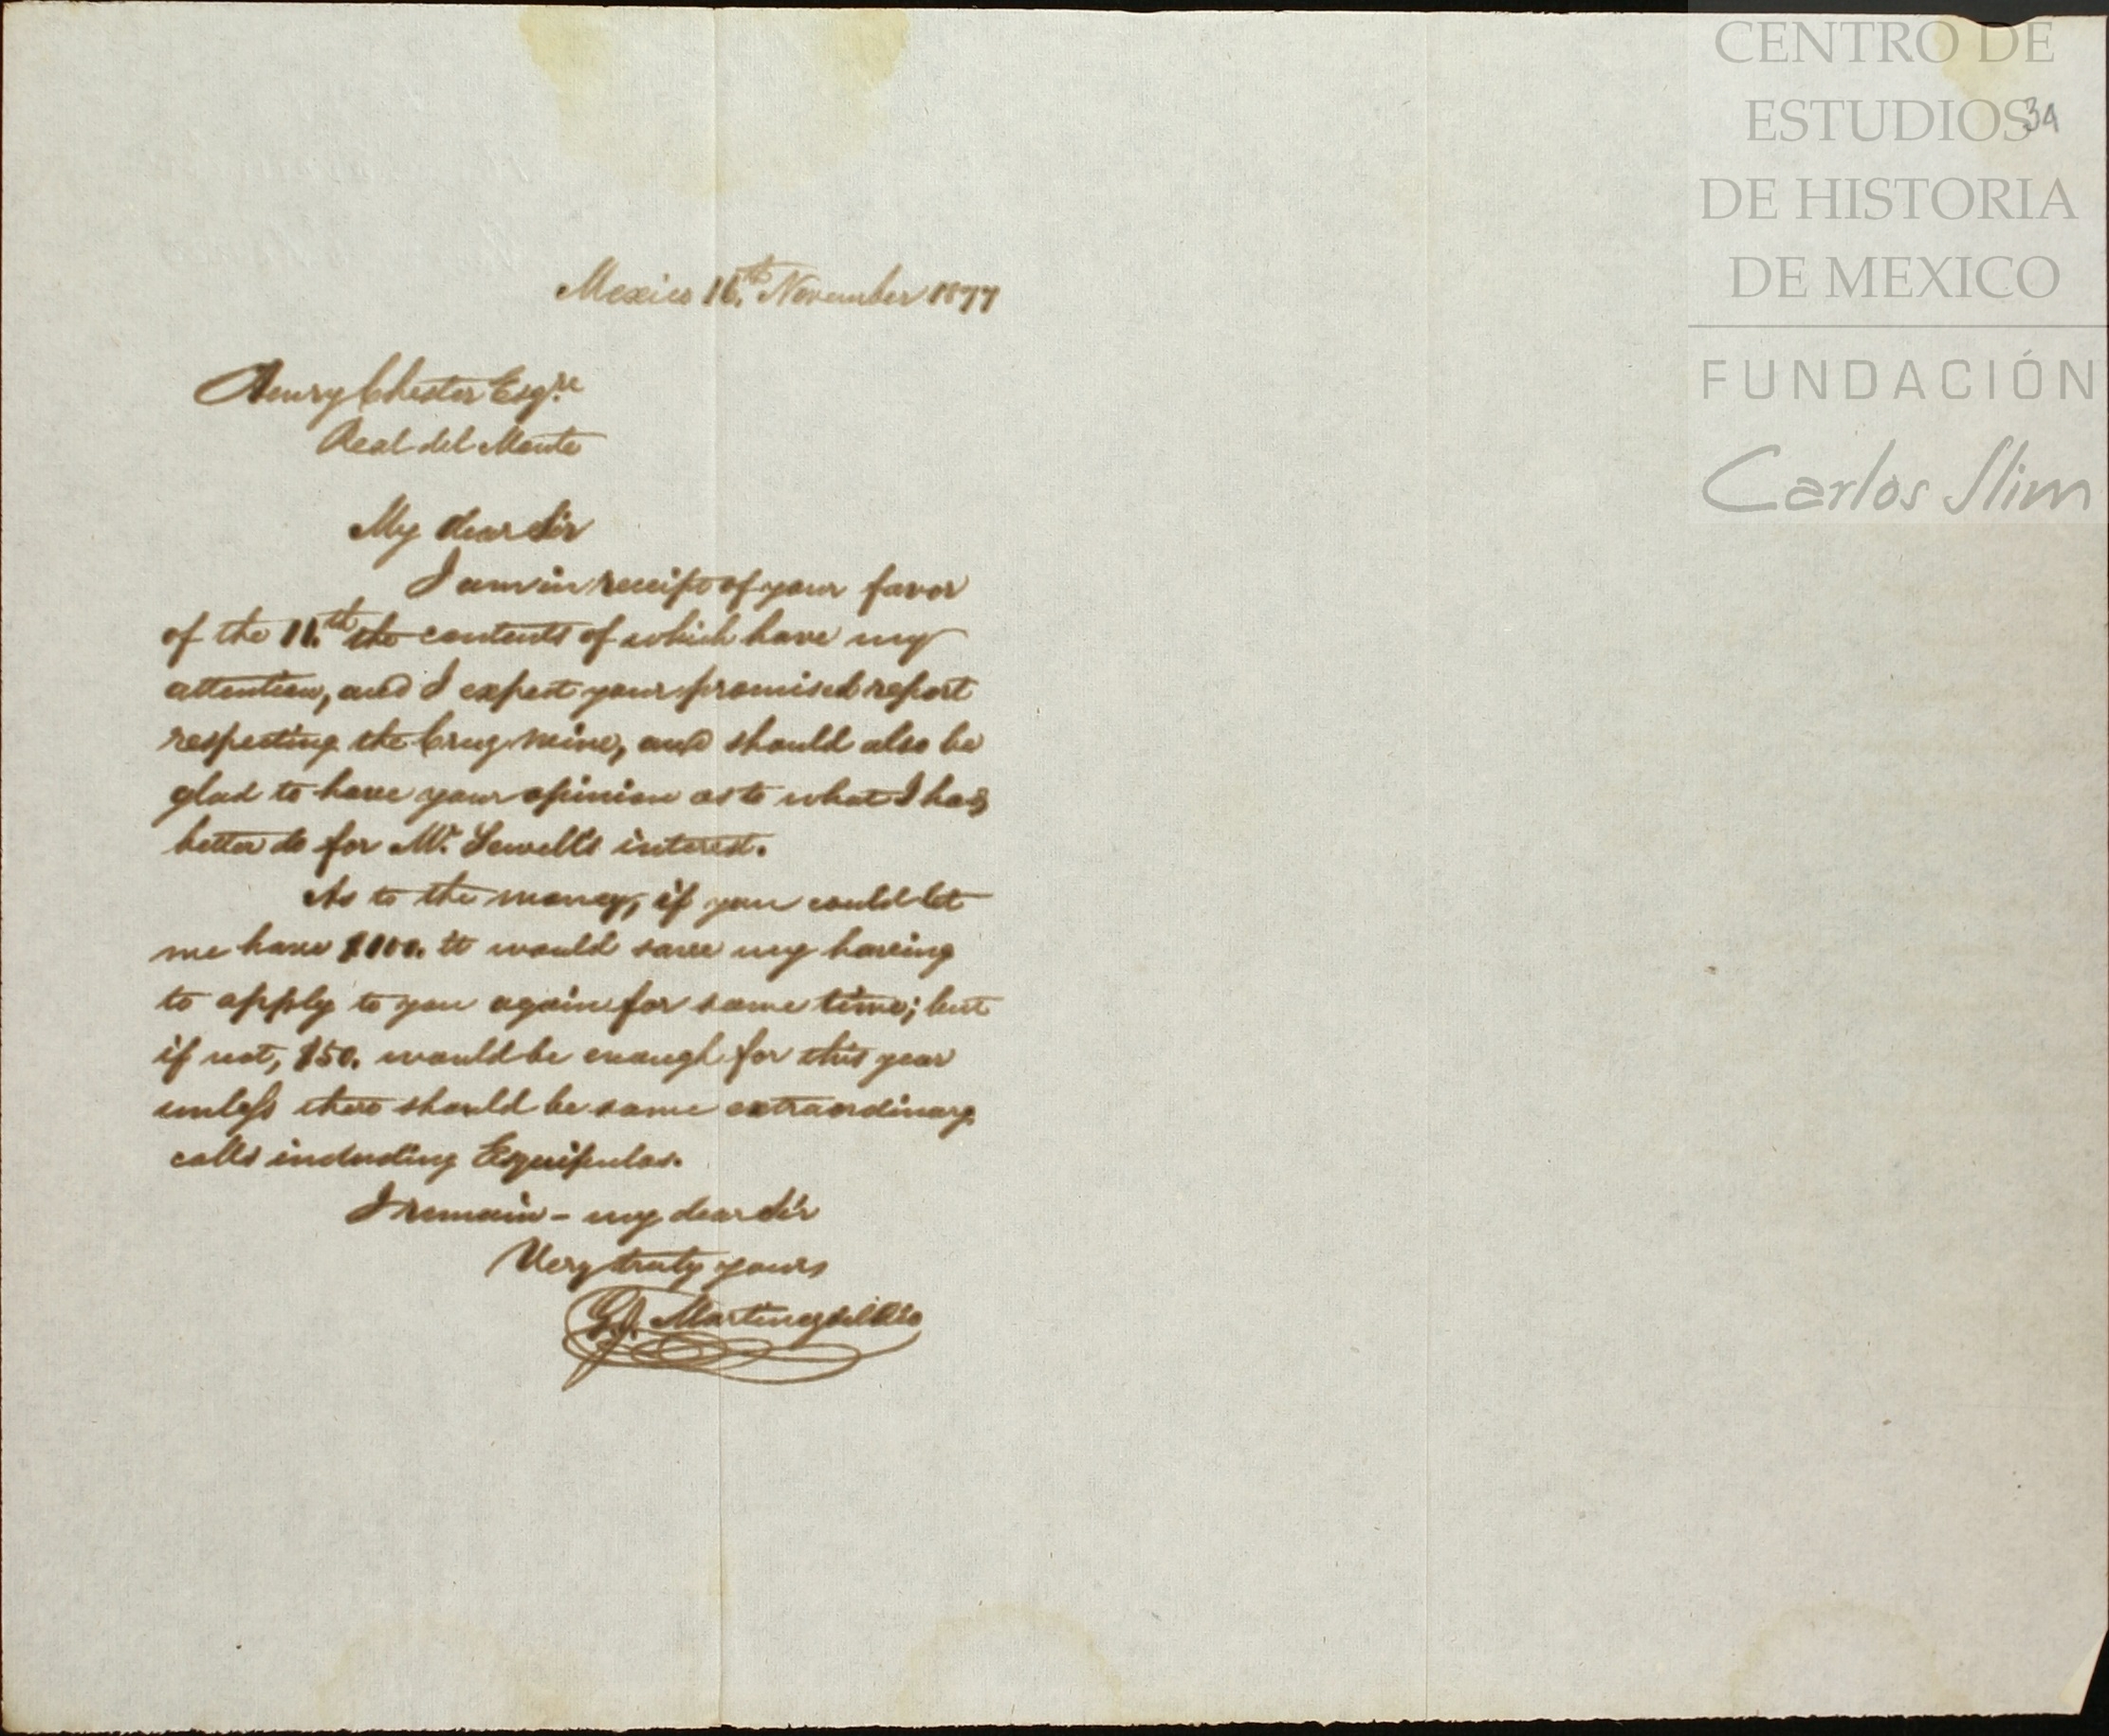 CENTRO DE
ESTUDIOS
DE HISTORIA
DE MEXICO
FUNDACIÓN
Carlos Slim
34
Mexico 16.th November 1877
Henry Chester Esq.re
Real del Monte
My dear Sir
I am in receipt of your favor
of the 11.th the contents of which have my
attention, and I expect your promised report
respecting the Cruz mine, and should also be
glad to have your opinion as to what I had
better do for Mr. Sewell's interest.
As to the money, if you could let
me have $100. it would save my having
to apply to you again for some time; but
if not, $50. would be enough for this year
unless there should be some extraordinary
calls including Esquipulas.
I remain - my dear Sir
Very truly yours
G. J. Martinez del Rio